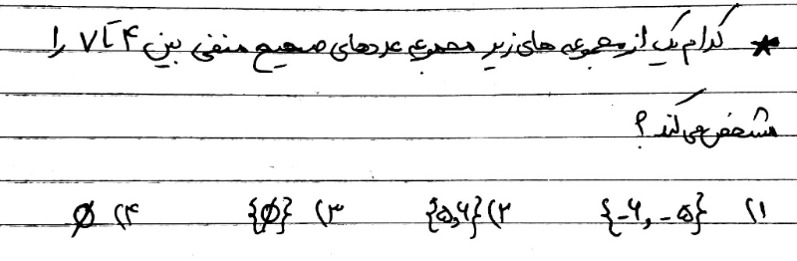 * کدام یک از مجموعه های زیر مجموعه عددهای صحیح منفی بین ۴ تا ۷ را
مشخص می کند ؟
۱) {-۶, -۵} ۲) {۵,۶} ۳) {∅} ۴) ∅